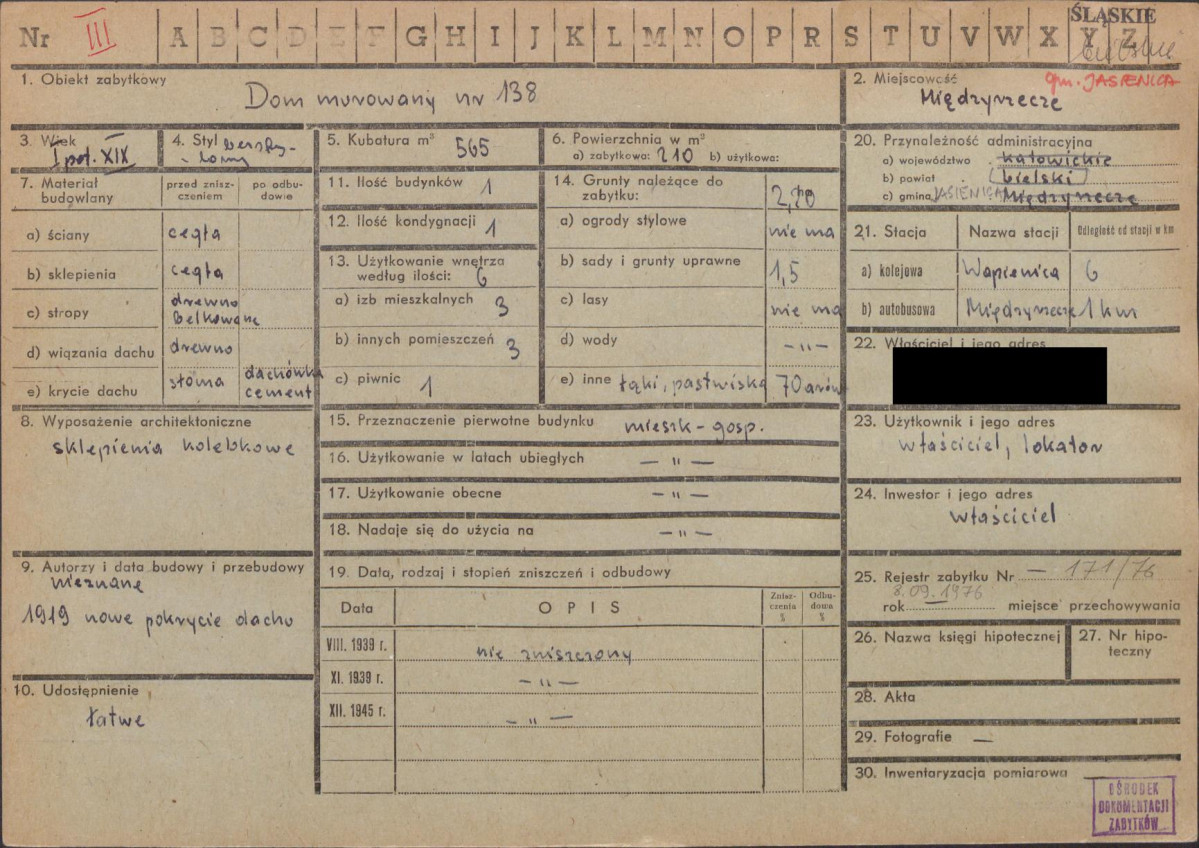 ŚLĄSKIE
Nr III A B C D E F G H I J K L M N O P R S T U V W X Y Z
1. Obiekt zabytkowy
Dom murowany nr 138
2. Miejscowość gm. JASIENICA
Międzyrzecze
3. Wiek
I poł. XIX
4. Styl bezsty-
lowy
5. Kubatura m³ 565
6. Powierzchnia w m²
a) zabytkowa: 210 b) użytkowa:
7. Materiał budowlany
przed znisz-
czeniem
po odbu-
dowie
a) ściany cegła
b) sklepienia cegła
c) stropy drewno
belkowane
d) wiązania dachu drewno
e) krycie dachu słoma dachówka
cement
8. Wyposażenie architektoniczne
sklepienia kolebkowe
9. Autorzy i data budowy i przebudowy
nieznane
1919 nowe pokrycie dachu
10. Udostępnienie
łatwe
11. Ilość budynków 1
12. Ilość kondygnacji 1
13. Użytkowanie wnętrza
według ilości: 6
a) izb mieszkalnych 3
b) innych pomieszczeń 3
c) piwnic 1
14. Grunty należące do
zabytku: 2,20
a) ogrody stylowe nie ma
b) sady i grunty uprawne 1,5
c) lasy nie ma
d) wody -„-
e) inne łąki, pastwiska 70 arów
15. Przeznaczenie pierwotne budynku mieszk-gosp.
16. Użytkowanie w latach ubiegłych — „ —
17. Użytkowanie obecne — „ —
18. Nadaje się do użycia na — „ —
19. Data, rodzaj i stopień zniszczeń i odbudowy
Data OPIS
Znisz-
czenia
%
Odbu-
dowa
%
VIII. 1939 r. nie zniszczony
XI. 1939 r. — „ —
XII. 1945 r. — „ —
20. Przynależność administracyjna
a) województwo katowickie
b) powiat bielski
c) gmina JASIENICA Międzyrzecze
21. Stacja Nazwa stacji Odległość od stacji w km
a) kolejowa Wapienica 6
b) autobusowa Międzyrzecze 1 km
22. Właściciel i jego adres
23. Użytkownik i jego adres
właściciel, lokator
24. Inwestor i jego adres
właściciel
25. Rejestr zabytku Nr — 171/76
8.09.1976
rok — miejsce przechowywania
26. Nazwa księgi hipotecznej
27. Nr hipo-
teczny
28. Akta
29. Fotografie —
30. Inwentaryzacja pomiarowa
OŚRODEK
DOKUMENTACJI
ZABYTKÓW